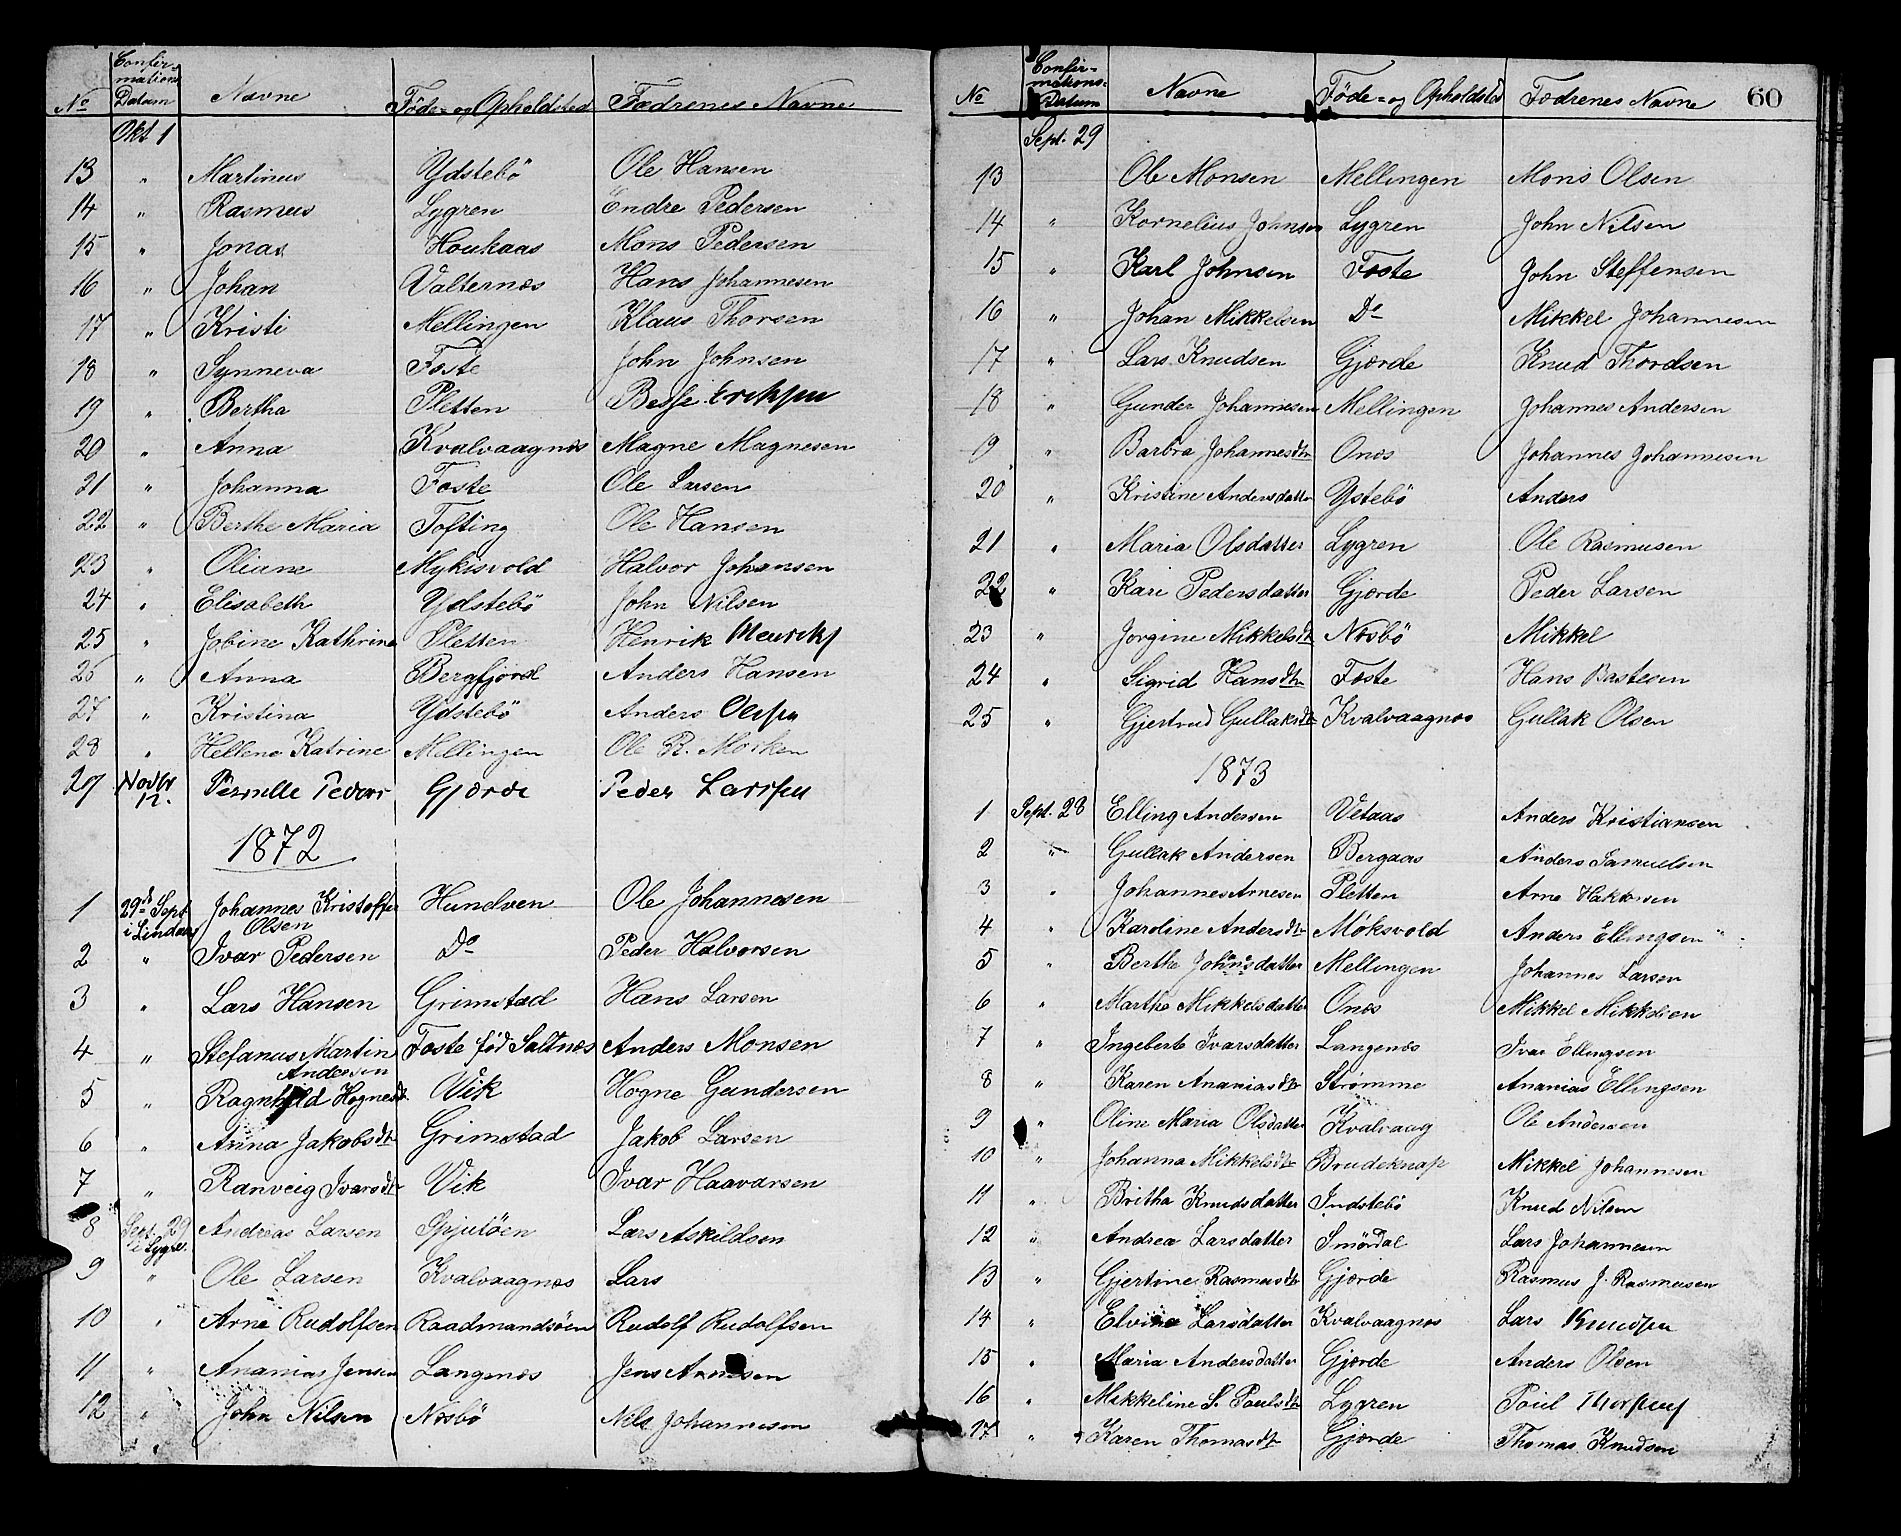 No Confir=mations Datum Navne Føde- og Opholdsted Fædrenes Navne
Okt 1
13 " Martinus Ydstebö Ole Hansen
14 " Rasmus Lygren Endre Pedersen
15 " Jonas Houkaas Mons Pedersen
16 " Johan Valternæs Hans Johannesen
17 " Kristi Mellingen Klaus Thorsen
18 " Synneva Foste John Johnsen
19 " Bertha Pletten Besse Eriksen
20 " Anna Kvalvaagnæs Magne Magnesen
21 " Johanna Foste Ole Larsen
22 " Berthe Maria Tofting Ole Hansen
23 " Oliane Myksvold Halvor Johansen
24 " Elisabeth Ydstebö John Nilsen
25 " Jobine Kathrine Pletten Henrik Henriks
26 " Anna Bergfjord Anders Hansen
27 " Kristina Ydstebö Anders Olsen
28 " Hellene Katrine Mellingen Ole R. Morken
29 Novbr 12. Pernille Peders Gjærde Peder Larssen
1872
1 29de Sept i Lindaas Johannes Kristoffer Olsen Hundven Ole Johannesen
2 " Ivar Pedersen Do Peder Halvorsen
3 " Lars Hansen Grimstad Hans Larsen
4 " Stefanus Martin Andersen Foste föd Saltnæs Anders Monsen
5 " Ragnhild Hognesdt. Vik Hogne Gundersen
6 " Anna Jakobsdtr Grimstad Jakob Larsen
7 " Ranveig Ivarsdtr Vik Ivar Haavarsen
8 Sept. 29 i Lygre. Andreas Larsen Spjutöen Lars Askildsen
9 " Ole Larsen Kvalvaagnæs Lars
10 " Arne Rudolfsen Raadmandsöen Rudolf Rudolfsen
11 " Ananias Jensen Langenæs Jens Arnesen
12 " John Nilsen Nosbö Nils Johannesen
No Confir=mations-Datum Navne Føde- og Opholdsted Fædrenes Navne 60
Sept. 29
13 Ole Monsen Mellingen Mons Olsen
14 " Kornelius Johnsen Lygren John Nilsen
15 " Karl Johnsen Foste John Steffensen
16 " Johan Mikkelsen Do Mikkel Johannesen
17 " Lars Knudsen Gjærde Knud Thordsen
18 " Gunder Johannesen Mellingen Johannes Andersen
19 " Barbra Johannesdtr Onæs Johannes Johannesen
20 " Kristine Andersdatter Ystebö Anders
21 " Maria Olsdatter Lygren Ole Rasmusen
22 " Kari Pedersdatter Gjærde Peder Larsen
23 " Jorgine Mikkelsdtr Nosbö Mikkel
24 " Sigrid Hansdtr Foste Hans Bastesen
25 " Gjertrud Gullaksdtr Kvalvaagnæs Gullak Olsen
1873
1 Sept. 28 Elling Andersen Vetaas Anders Kristiansen
2 " Gullak Andersen Bergaas Anders Samuelsen
3 " Johannes Arnesen Pletten Arne Haktorsen
4 " Karoline Andersdtr Möksvold Anders Ellingsen
5 " Berthe Johnsdatter Mellingen Johannes Larsen
6 " Marthe Mikkelsdatter Onæs Mikkel Mikkelsen
7 " Ingebert Ivarsdatter Langenæs Ivar Ellingsen
8 " Karen Ananiasdtr Strømme Ananias Ellingsen
9 " Oline Maria Olsdatter Kvalvaag Ole Andersen
10 " Johanna Mikkelsdtr Brudeknap Mikkel Johannesen
11 " Britha Knudsdatter Indstebö Knud Nilsen
12 " Andrea Larsdatter Smördal Lars Johannesen
13 " Gjertine Rasmusdtr Gjærde Rasmus J. Rasmusen
14 " Elvine Larsdatter Kvalvaagnæs Lars Knudsen
15 " Maria Andersdatter Gjærde Anders Olsen
16 " Mikkeline S. Paulsdtr Lygren Poul
17 " Karen Thomasdtr Gjærde Thomas Knudsen